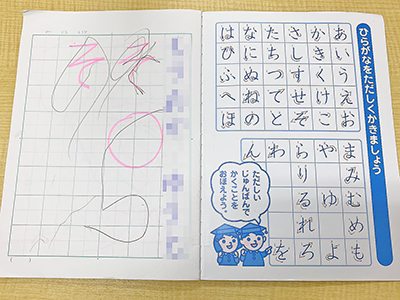 ひらがなをただしくかきましょう
あいうえお
かきくけこ
さしすせそ
たちつてと
なにぬねの
はひふへほ
まみむめも
やゆよ
らりるれろ
わを
ん
ただしい
じゅんばんで
かくことを
おぼえよう。